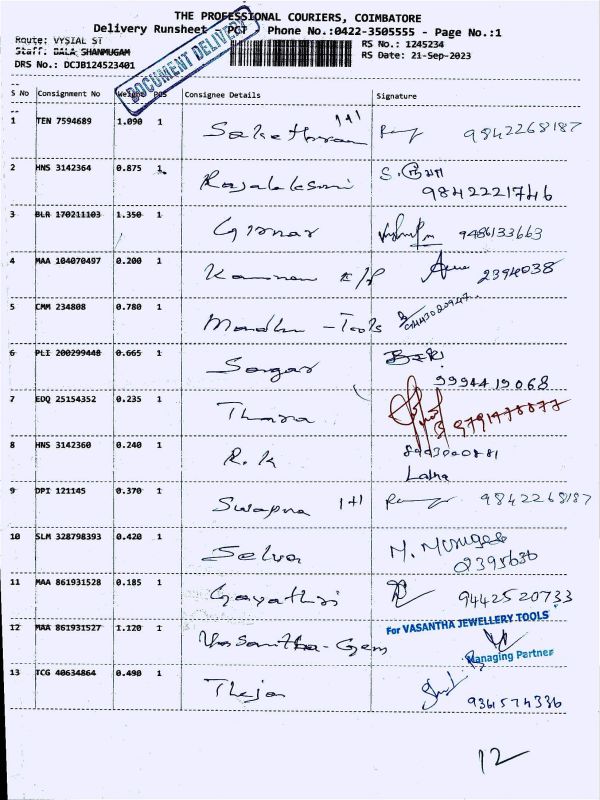 THE PROFESSIONAL COURIERS, COIMBATORE
Delivery Runsheet PCT Phone No.:0422-3505555 - Page No.:1
Route: VYSIAL ST
RS No.: 1245234
Staff: BALA SHANMUGAM
RS Date: 21-Sep-2023
DRS No.: DCJB124523401
DOCUMENT DELIVERY
S No Consignment No Weight Pcs Consignee Details Signature
1 TEN 7594689 1.090 1 1+1 9842268187
2 HNS 3142364 0.875 1 Rajalaksmi
9842221746
3 BLR 170211103 1.350 1 Girnar 9486133663
4 MAA 104070497 0.200 1 Kannan E/P 2394038
5 CMM 234808 0.780 1 Madhu - Tools
6 PLI 200299448 0.665 1 Sagar
9994419068
7 EDQ 25154352 0.235 1 Thara
8 HNS 3142360 0.240 1 R.K
Latha
9 DPI 121145 0.370 1 Swapna 1+1 9842268187
10 SLM 328798393 0.420 1 Selva M. Murugan
2395636
11 MAA 861931528 0.185 1 Gayathri 9442520733
For VASANTHA JEWELLERY TOOLS
12 MAA 861931527 1.120 1 Vasantha - Gem
Managing Partner
13 TCG 40634864 0.490 1 Theja
12